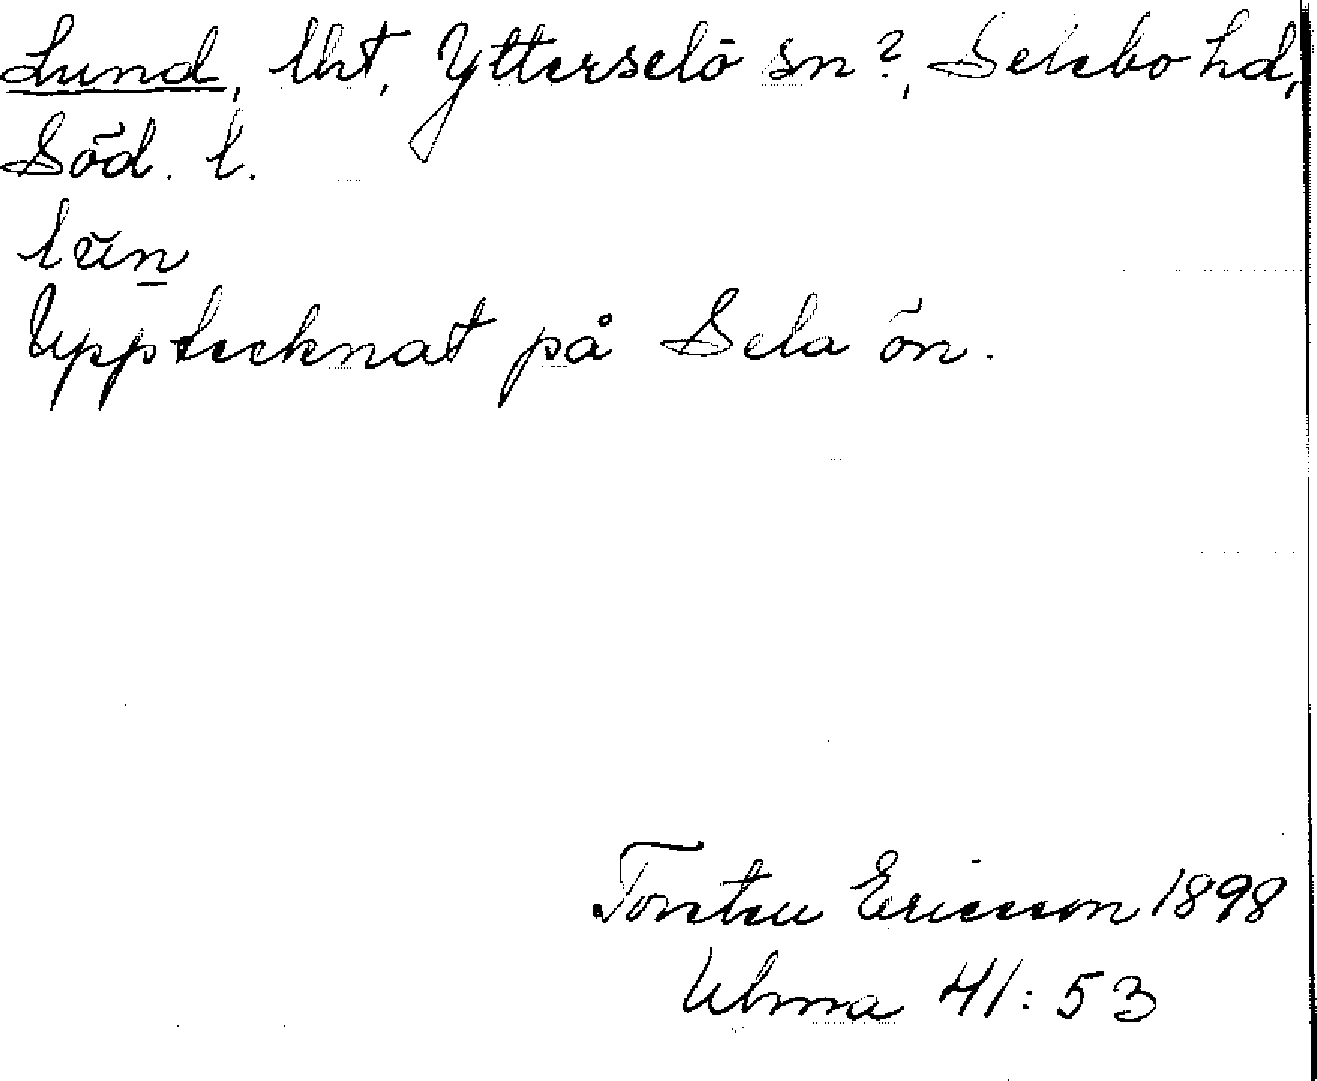 Lund, tht, Ytterselö sn?, Selebo hd,
Söd. l.
Upptecknat på Selaön.
Torsten Ericsson 1898
Ulma 41:53